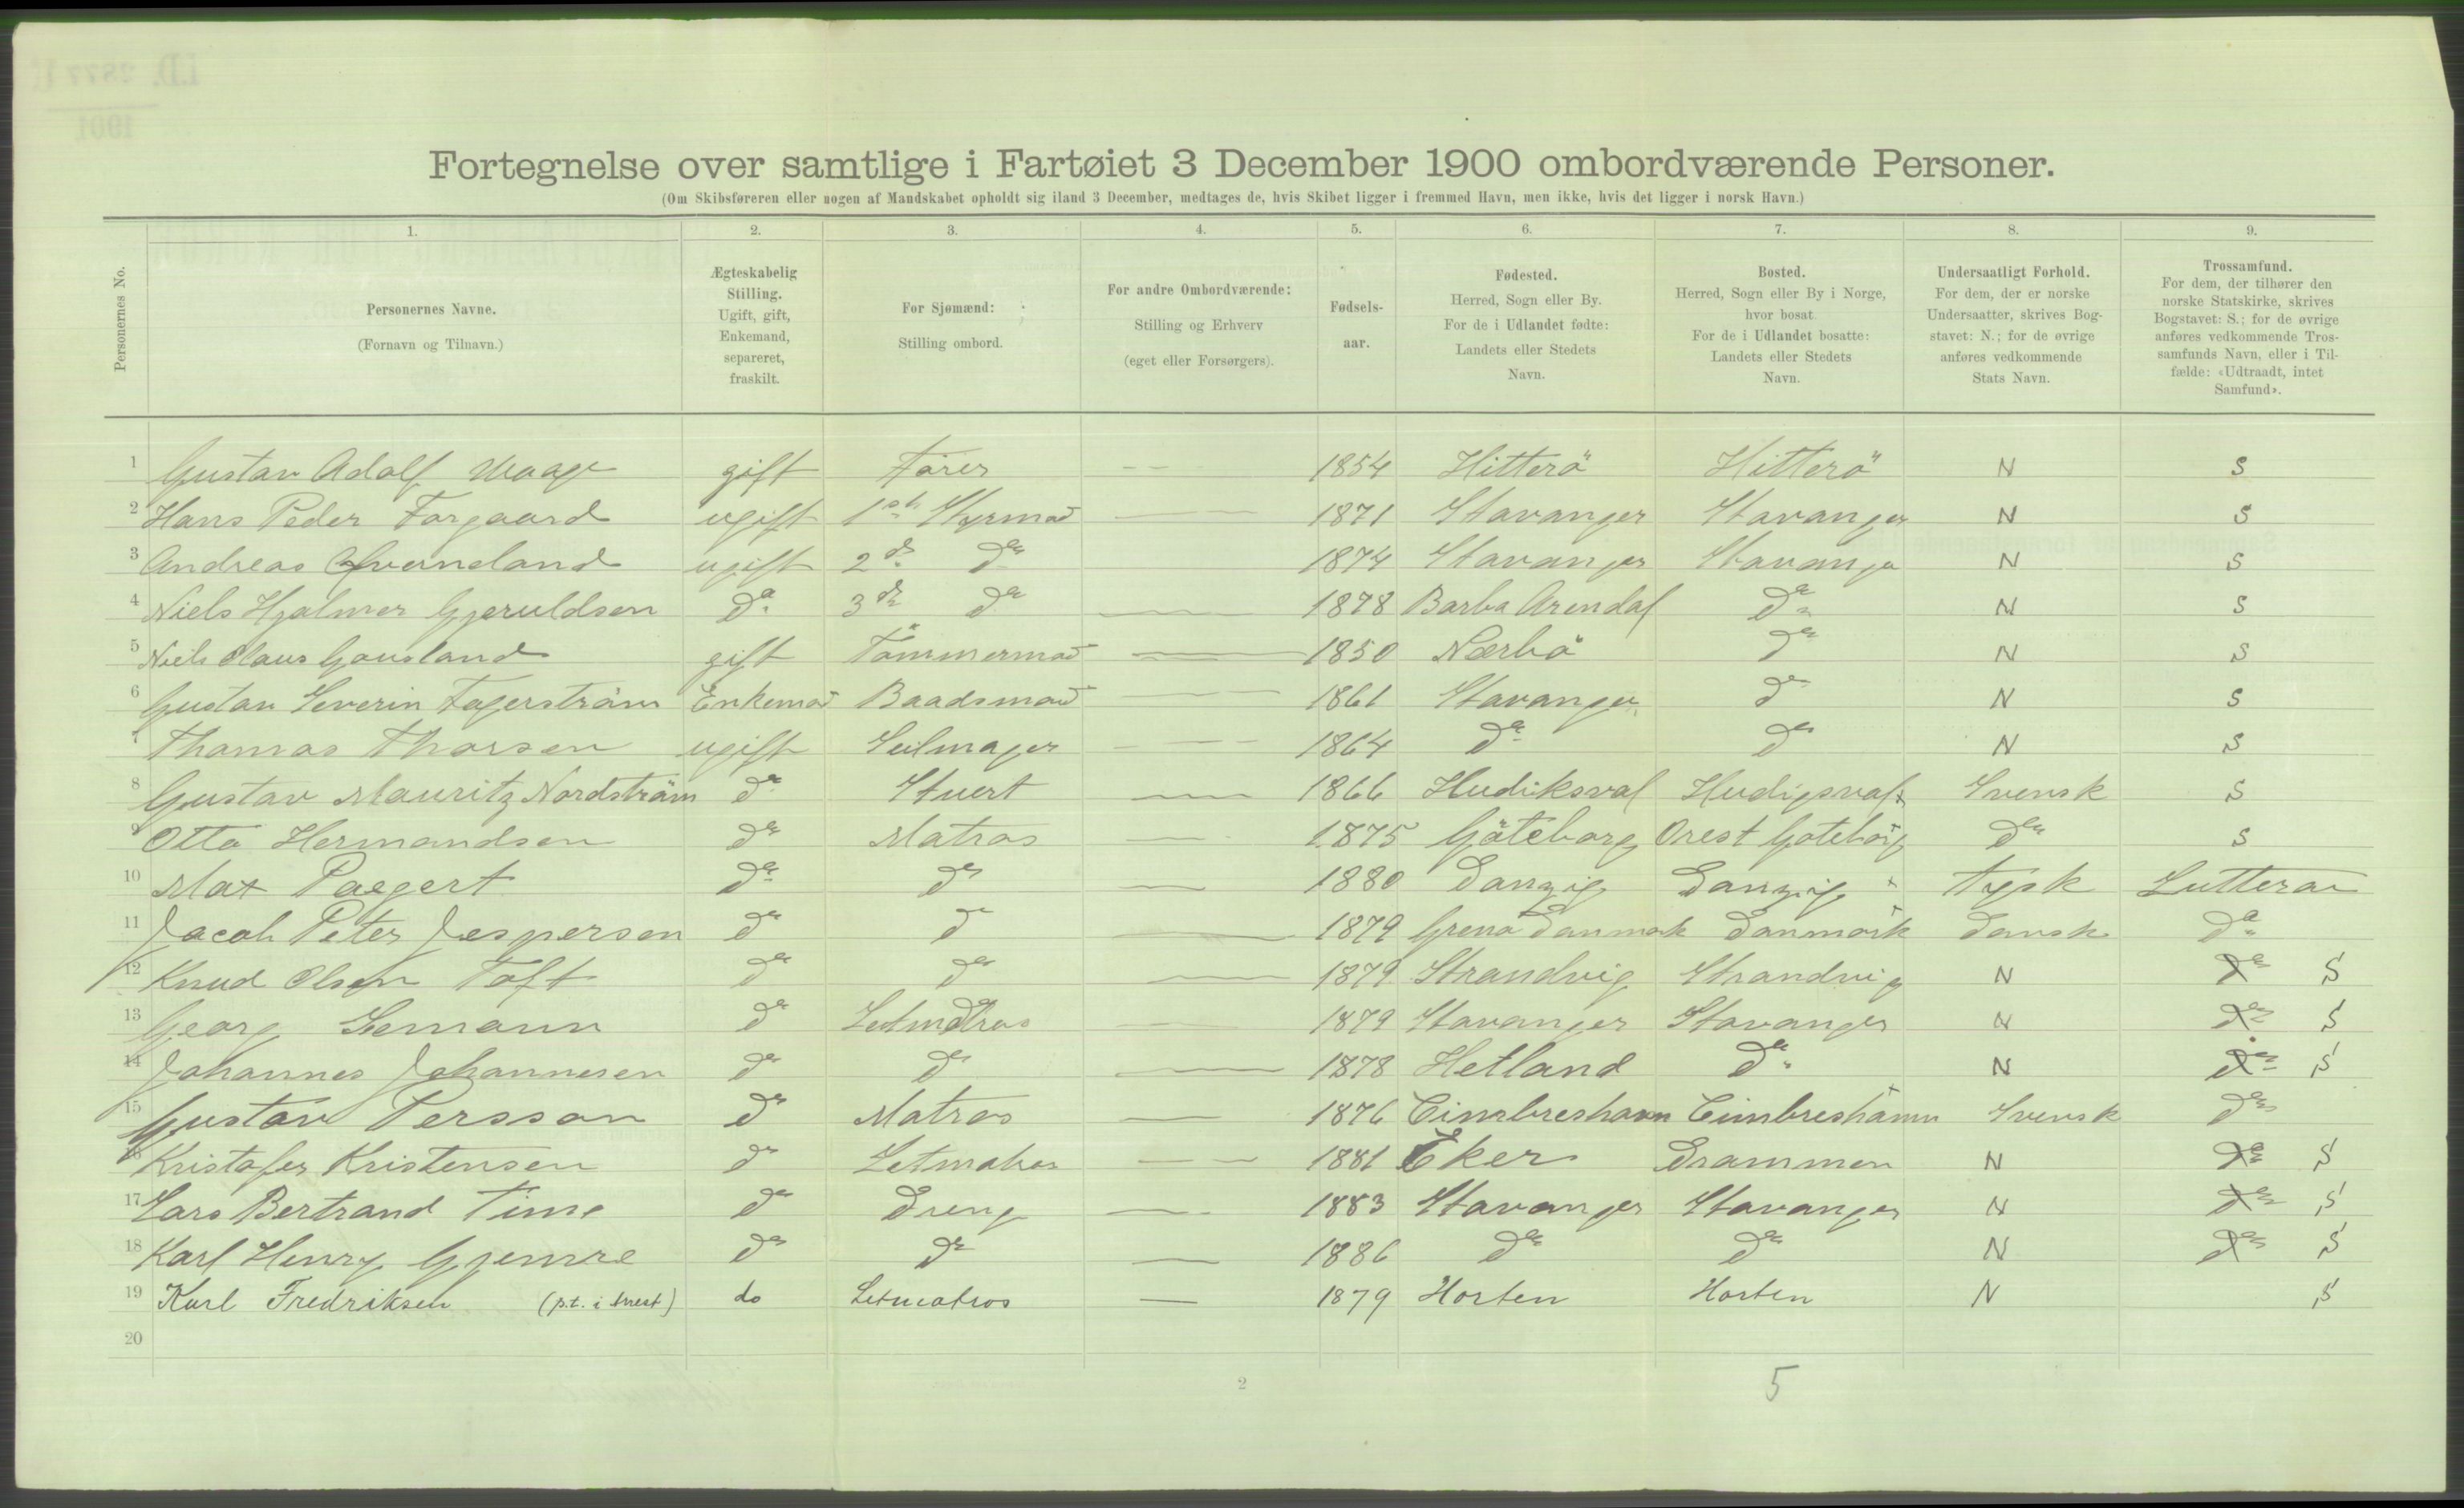 Fortegnelse over samtlige i Fartøiet 3 December 1900 ombordværende Personer.
(Om Skibsføreren eller nogen af Mandskabet opholdt sig iland 3 December, medtages de, hvis Skibet ligger i fremmed Havn, men ikke, hvis det ligger i norsk Havn.)
1. 2. 3. 4. 5. 6. 7. 8. 9.
Personernes No.
Personernes Navne.
(Fornavn og Tilnavn.)
Ægteskabelig
Stilling.
Ugift, gift,
Enkemand,
separeret,
fraskilt.
For Sjømænd:
Stilling ombord.
For andre Ombordværende:
Stilling og Erhverv
(eget eller Forsørgers).
Fødsels-
aar.
Fødested.
Herred, Sogn eller By.
For de i Udlandet fødte:
Landets eller Stedets
Navn.
Bosted.
Herred, Sogn eller By i Norge,
hvor bosat.
For de i Udlandet bosatte:
Landets eller Stedets
Navn.
Undersaatligt Forhold.
For dem, der er norske
Undersaatter, skrives Bog-
stavet: N.; for de øvrige
anføres vedkommende
Stats Navn.
Trossamfund.
For dem, der tilhører den
norske Statskirke, skrives
Bogstavet: S.; for de øvrige
anføres vedkommende Tros-
samfunds Navn, eller i Til-
fælde: «Udtraadt, intet
Samfund».
1 Gustav Adolf Waage gift Förer — 1854 Hitterö Hitterö N S
2 Hans Peder Forgaard ugift 1ste Styrmad — 1871 Stavanger Stavanger N S
3 Andreas ugift 2d do 1874 Stavanger Stavanger N S
4 Niels Hjalmer Gjeruldsen do 3d do — 1878 Barbo Arendal do N S
5 Niels Claus Gousland gift Tömmermad — 1850 Nærbö do N S
6 Gustav Severin Fagerström Enkemad Baadsmand — 1861 Stavanger do N S
7 Thomas Thorsen ugift Seilmager — 1864 do do N S
8 Gustav Mauritz Nordström do Stuert — 1866 Hudiksval Hudigsval x Svensk S
9 Otto Hermandsen do Matros — 1875 Göteborg Orest Goteborg do S
10 Max Paegert do do — 1880 Danzig Danzig x Tysk Lutteran
11 Jacob Peter Jespersen do do — 1879 Grena Danmark Danmark Dansk do
12 Knud Olsen Toft do do — 1879 Strandvig Strandvig N do S
13 Georg Lemann do Letmatros — 1879 Stavanger Stavanger N do S
14 Johannes Johannesen do do — 1878 Hetland do N do S
15 Gustav Persson do Matros — 1876 Cimbreshavn Cimbreshamn Svensk do
16 Kristofer Kristensen do Letmatros — 1881 Eker Drammen N do S
17 Lars Bertrand Time do Dreng — 1883 Stavanger Stavanger N do S
18 Karl Henry Gjemre do do — 1886 do do N do S
19 Karl Fredriksen (p.t. i Arrest) do Letmatros — 1879 Horten Horten N S
20
2 5